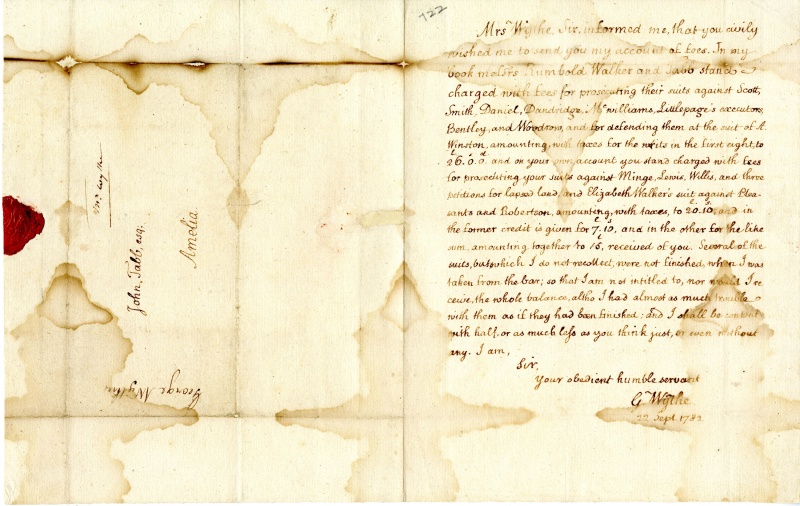 722
Mrs Wythe, Sir, informed me, that you civily
wished me to send you my account of fees. In my
book messrs Rumbold Walker and Tabb stand
charged with fees for prosecuting their suits against Scott,
Smith, Daniel, Dandridge, Mcwilliams, Littlepage's executors,
Bentley, and Woodrow, and for defending them at the suit of A.
Winston, amounting, with taxes for the writs in the first eight, to
£26.s0.d0. and on your own account you stand charged with fees
for prosecuting your suits against Minge, Lewis, Wills, and three
petitions for lapsed land, and Elizabeth Walker's suit against Plea-
sants and Robertson, amounting, with taxes, to £20.s10, and in
the former credit is given for £7.s10, and in the other for the like
sum, amounting together to £15, received of you. Several of the
suits, but which I do not recollect, were not finished, when I was
taken from the bar; so that I am not intitled to, nor would I re-
ceive, the whole balance, altho I had almost as much trouble
with them as if they had been finished; and I shall be content
with half, or as much less as you think just, or even without
any. I am,
Sir,
Your obedient humble servant
G Wythe
22 Sept 1782
John Tabb, esq.
Amelia
George Wythe